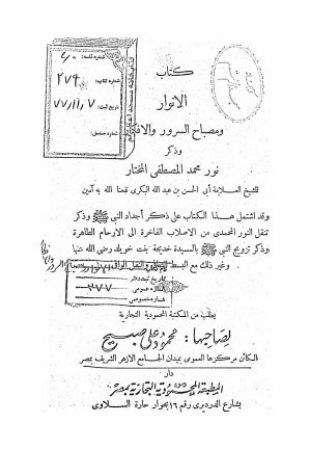 كتاب
الانوار
ومصباح السرور والافكار
وذكر
نور محمد المصطفى المختار
للشيخ العلامة أبي الحسن بن عبد الله البكرى نفعنا الله به آمين
وقد اشتمل هذا الكتاب على ذكر أجداد النبي ﷺ وذكر
تنقل النور المحمدى من الاصلاب الفاخرة الى الارحام الطاهرة
وذكر تزويج النبي ﷺ بالسيدة خديجة بنت خويلد رضى الله عنها
وغير ذلك مع البسط
يطلب من المكتبة المحمودية التجارية
لصاحبها: محمود على صبيح
الكائن مركزها العمومى بميدان الجامع الازهر الشريف بمصر
دار
المطبعة المحمودية التجارية بمصر
بشارع الدرديرى رقم ١٦ بجوار حارة السلاوى
شماره قفسه:
شماره کتاب: ٢٧٩
تاریخ ثبت: ٧٧/١١/٧
شماره مسلسل: